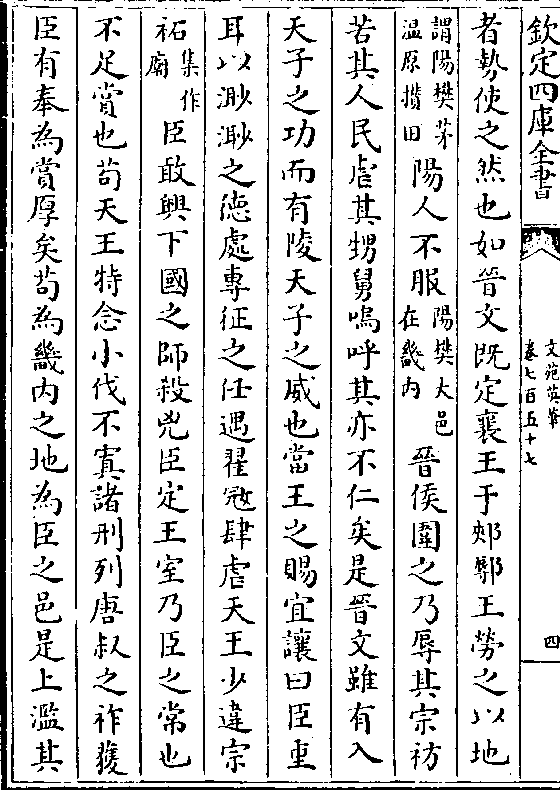 欽定四庫全書
文苑英華
卷七百五十七
四
者勢使之然也如晉文既定襄王于郟鄏王勞之以地
謂陽樊茅
温原攢田
陽人不服
陽樊大邑
在畿内
晉侯圍之乃辱其宗祊
苦其人民虐其甥舅嗚呼其亦不仁矣是晉文雖有入
天子之功而有陵天子之威也當王之賜宜讓曰臣重
耳以渺渺之徳處專征之任遇翟冦肆虐天王少違宗
祏
集作
廟
臣敢興下國之師殺兇臣定王室乃臣之常也
不足賞也茍天王特念小伐不寘諸刑列唐叔之祚獲
臣有奉為賞厚矣茍為畿内之地為臣之邑是上濫其